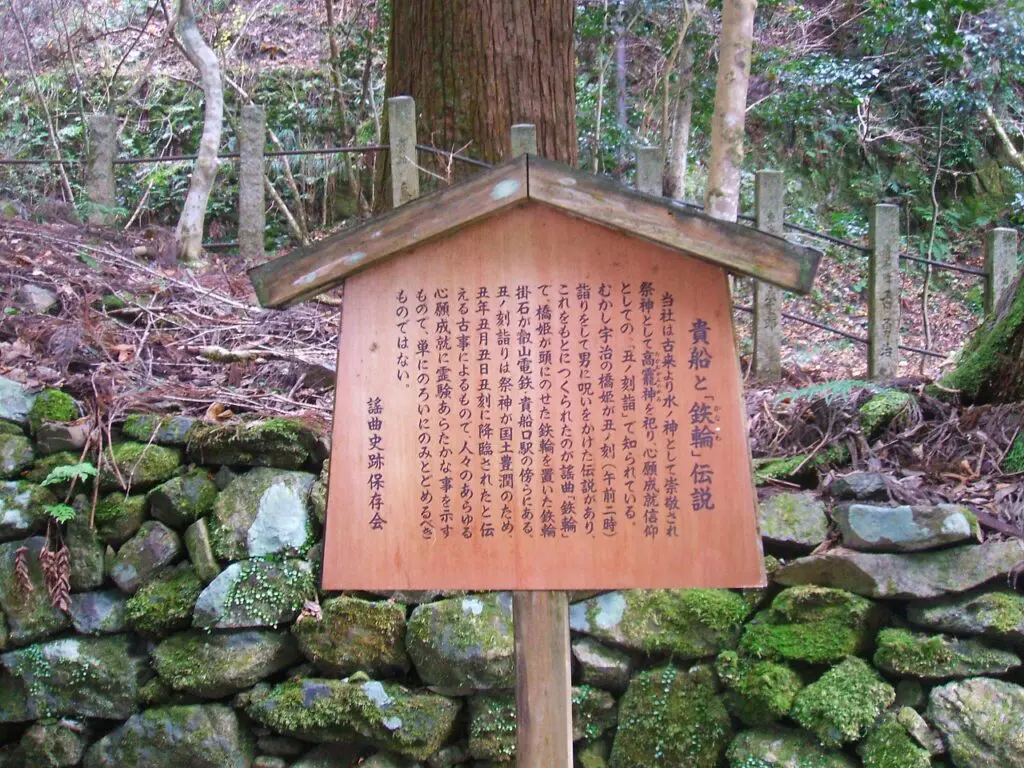 貴船と「鉄輪」伝説
当社は古来より水ノ神として崇敬され
祭神として高龗神を祀り、心願成就信仰
としての「丑ノ刻詣」で知られている。
むかし宇治の橋姫が丑ノ刻（午前二時）
詣りをして男に呪いをかけた伝説があり、
これをもとにつくられたのが謡曲「鉄輪」
で、橋姫が頭にのせた鉄輪を置いた鉄輪
掛石が叡山電鉄・貴船口駅の傍らにある。
丑ノ刻詣りは祭神が国土豊潤のため、
丑年丑月丑日丑刻に降臨されたと伝
える古事によるもので、人々のあらゆる
心願成就に霊験あらたかな事を示す
もので、単にのろいにのみとどめるべき
ものではない。
謡曲史跡保存会